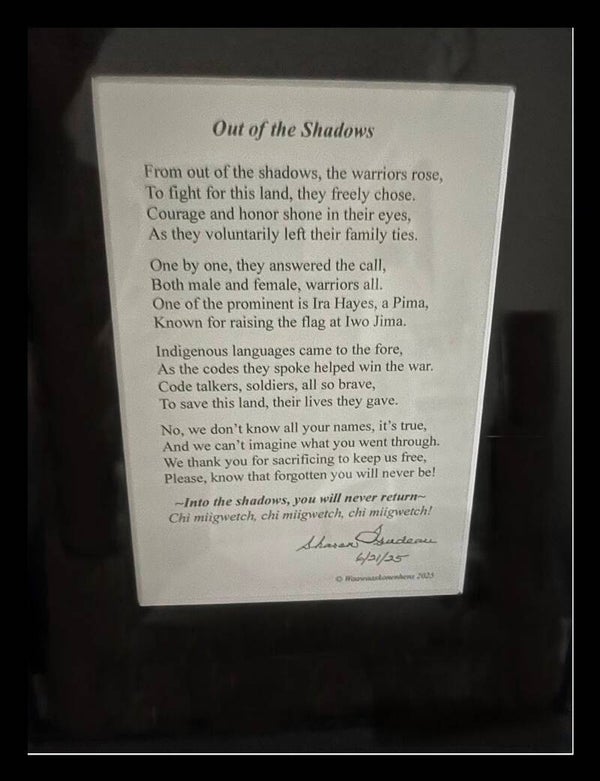 Out of the Shadows
From out of the shadows, the warriors rose,
To fight for this land, they freely chose.
Courage and honor shone in their eyes,
As they voluntarily left their family ties.
One by one, they answered the call,
Both male and female, warriors all.
One of the prominent is Ira Hayes, a Pima,
Known for raising the flag at Iwo Jima.
Indigenous languages came to the fore,
As the codes they spoke helped win the war.
Code talkers, soldiers, all so brave,
To save this land, their lives they gave.
No, we don't know all your names, it's true,
And we can't imagine what you went through.
We thank you for sacrificing to keep us free,
Please, know that forgotten you will never be!
~Into the shadows, you will never return~
Chi miigwetch, chi miigwetch, chi miigwetch!
Sharon
6/21/25
© 2025